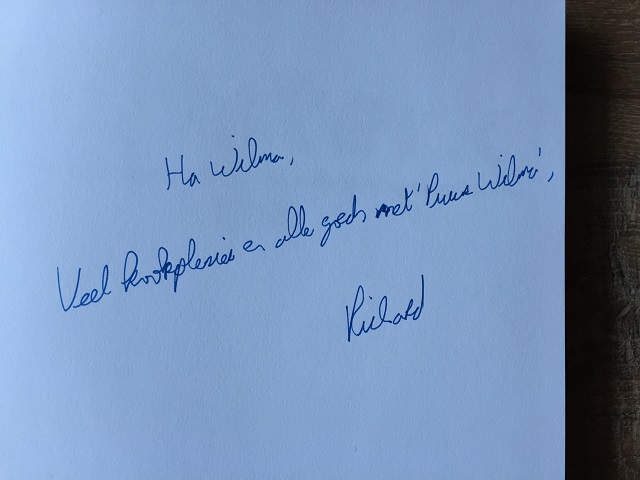 Ha Wilma,
Veel kookplezier en alle goeds met 'Puur Wilma',
Richard